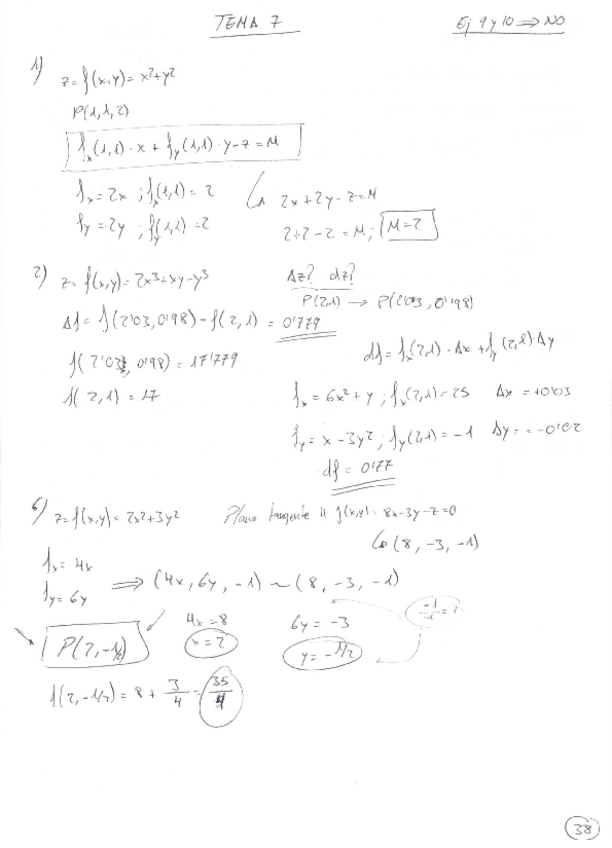 TEMA 7
Ej 9 y 10 ⇒ NO
1)
z=f(x,y)=x²+y²
P(1,1,2)
fx(1,1)·x + fy(1,1)·y-z=M
fx=2x ; fx(1,1)=2
2x+2y-z=M
fy=2y ; fy(1,1)=2
2+2-2=M; M=2
2)
z=f(x,y)=2x³+xy-y³
Δz? dz?
P(2,1) → P(2'03,0'98)
Δf=f(2'03,0'98)-f(2,1)=0'779
df=fx(2,1)·Δx+fy(2,1)·Δy
f(2'03, 0'98)=17'779
f(2,1)=17
fx=6x²+y ; fx(2,1)=25 Δx=+0'03
fy=x-3y² ; fy(2,1)=-1 Δy=-0'02
df=0'77
6)
z=f(x,y)=2x²+3y² Plano tangente || f(x,y)=8x-3y-z=0
(8,-3,-1)
fx=4x
fy=6y
⇒ (4x,6y,-1) ~ (8,-3,-1)
4x=8 6y=-3
P(2,-1/2)
x=2 y=-1/2
f(2,-1/2)=8+3/4=35/4
38